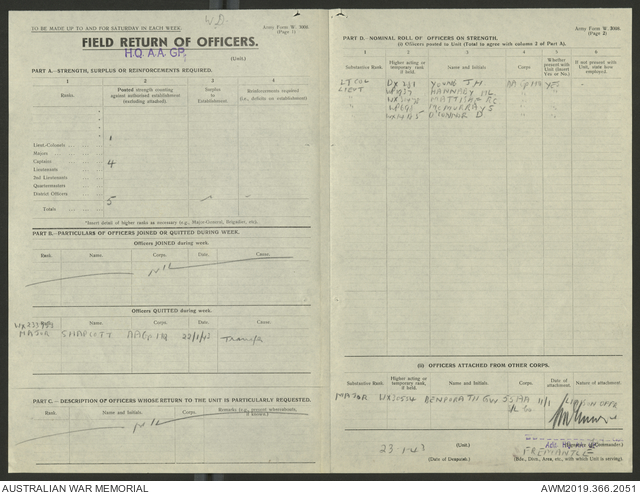 W.D.
TO BE MADE UP TO AND FOR SATURDAY IN EACH WEEK.
Army Form W. 3008.
(Page 1)
FIELD RETURN OF OFFICERS.
H.Q. A.A. GP.
(Unit.)
PART A.-STRENGTH, SURPLUS OR REINFORCEMENTS REQUIRED.
1 2 3 4
Ranks. Posted strength counting against authorised establishment (excluding attached) Surplus to Establishment. Reinforcements required (i.e., deficits on establishment)
Lieut.-Colonels 1
Majors
Captains 4
Lieutenants
2nd Lieutenants
Quartermasters
District Officers
Totals 5
*Insert detail of higher ranks as necessary (e.g., Major-General, Brigadier, etc.).
PART B.-PARTICULARS OF OFFICERS JOINED OR QUITTED DURING WEEK.
Officers JOINED during week.
Rank. Name. Corps. Date. Cause.
NIL
Officers QUITTED during week.
Name. Corps. Date. Cause.
MAJOR 22/1/43 Transfer
PART C.-DESCRIPTION OF OFFICERS WHOSE RETURN TO THE UNIT IS PARTICULARLY REQUESTED.
Rank. Name and Initials. Corps. Remarks (e.g., present whereabouts, if known.)
NIL
Army Form W. 3008.
(Page 2)
PART D.-NOMINAL ROLL OF OFFICERS ON STRENGTH.
(i) Officers posted to Unit (Total to agree with column 2 of Part A).
1 2 3 4 5 6
Substantive Rank. Higher acting or temporary rank if held. Name and Initials. Corps. Whether present with Unit (Insert Yes or No.) If not present with Unit, state how employed.
LT COL YOUNG J H YES
LIEUT
O'CONNOR D
(ii) OFFICERS ATTACHED FROM OTHER CORPS.
Substantive Rank. Higher acting or temporary rank if held. Name and Initials. Corps. Date of attachment. Nature of attachment.
MAJOR 11/1
23-1-43
(Unit.)
(Date of Despatch.)
FREMANTLE
(Bde., Div., Area, etc., with which Unit is serving).
AUSTRALIAN WAR MEMORIAL
AWM2019.366.2051